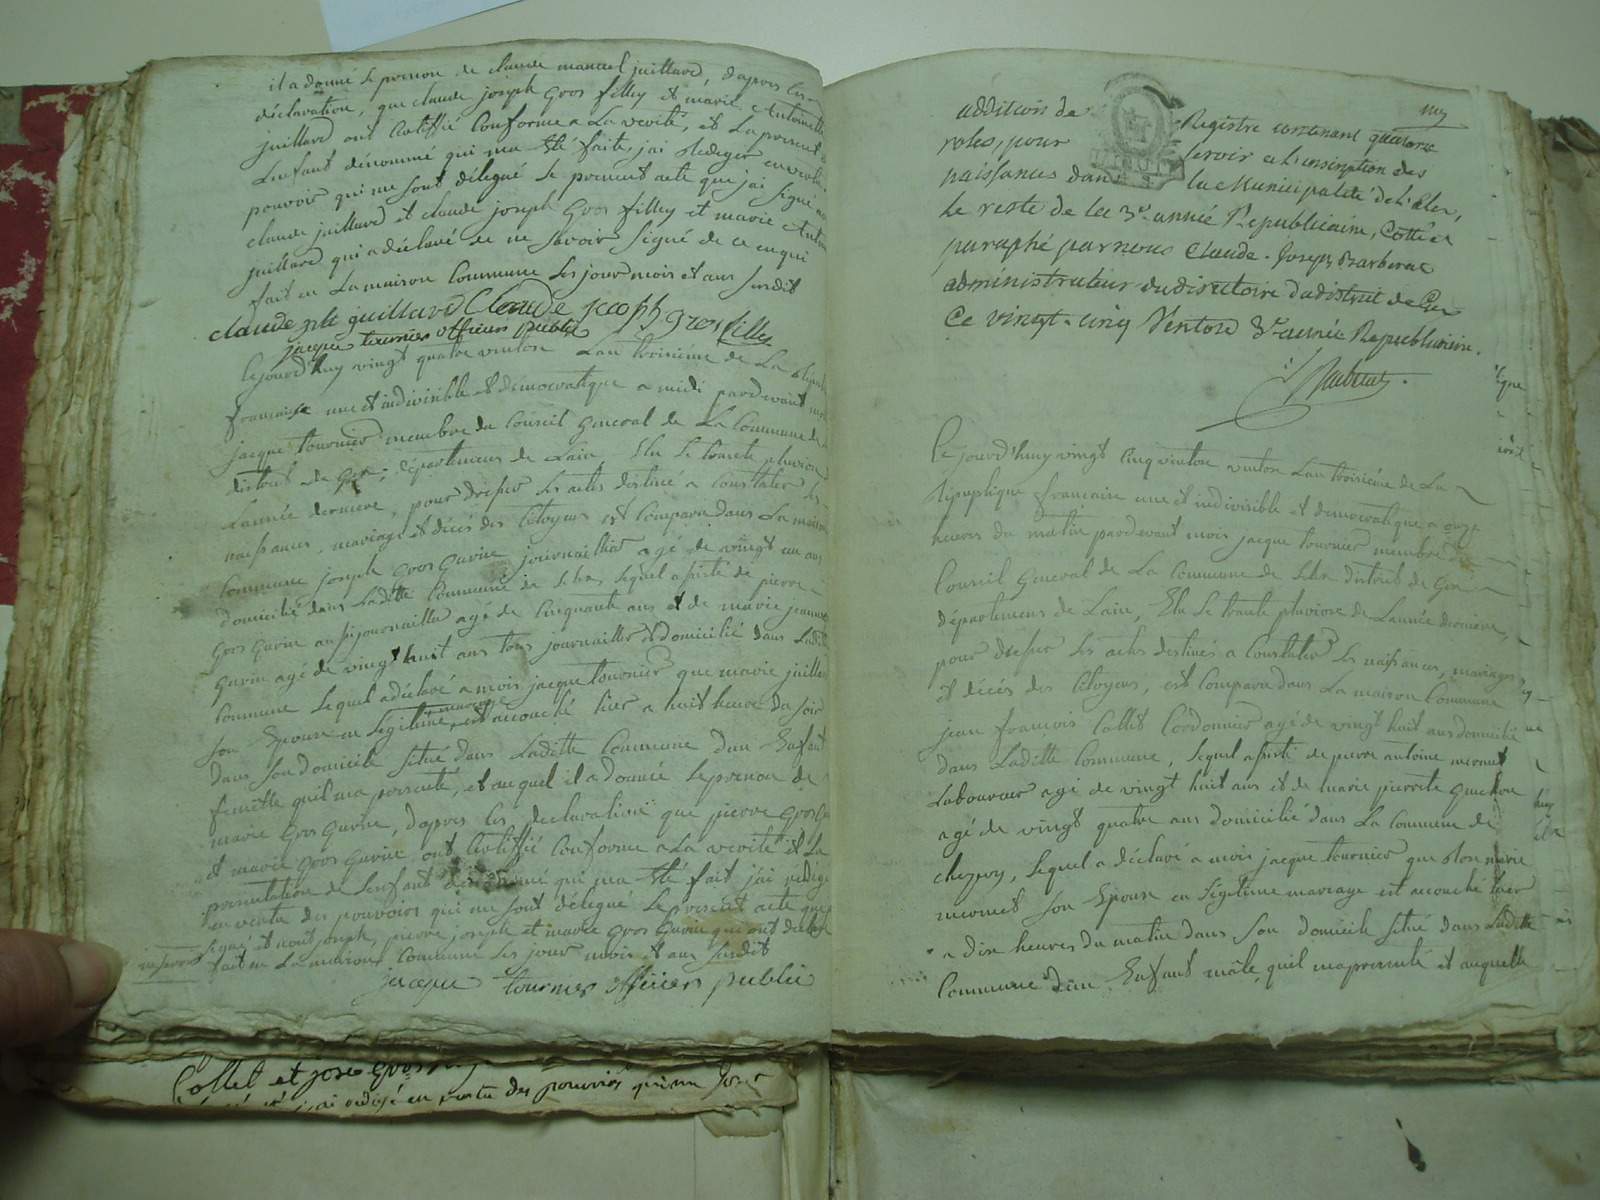 il a donné le prenom de claude manuel juillard, dapres les
déclaration, que claude joseph Gros filley et marie Antoinette
juillard ont Certiffié Conforme a La verité, et La presentation
Lenfant dénommé qui ma été faite, jai Redeger en vertu
pouvoir qui me sont délegué le present acte que jai signé
claude juillard et claude joseph Gros filley et marie Antoi
juillard qui a déclaré de ne savoir signé de ce enqui
fait en La maison Commune Les jour mois et ans susdit
claude jph guillard Claude joseph gros filley
jacque tournier officier publie
Cejourd'huy vingt quatre vintose Lan troisième de La
francaise une et indivisible et démocratique a midi pardevant
jacque tournier membre du Conseil General de La Commune de
district de Gex, département de Lain Elu Le trante pluviose
Lannée derniere, pour dresser Les actes destiné a constater les
naissances, mariage et décès des Citoyens est Comparu dans La maison
Commune joseph Gros Gurin journaillier agé de vingt un ans
domicilié dans Laditte Commune de Lelex, lequel assisté de pierre
Gros Gurin aussi journaillier agé de Cinquante ans et de marie jeanne
Gurin agé de vingt huit ans tous journaillier et domicilié dans Laditte
Commune Lequel a déclaré a mois jacque tournier que marie juillard
mariage
son Epouse en Légitime est accouché hier a huit heure du soir
dans son domicile situé dans Laditte Commune dun Enfant
femelle quil ma presenté, et auquel il a donné le prenom de
marie Gros Gurin, dapres les declaration que pierre Gros
et marie Gros Gurin ont Certiffié Conforme a La verité et La
presentation de Lenfant dénommé qui ma été fait jai redigé
en vertu des pouvoirs qui me sont délegué Le present acte que
signé et nont joseph, pierre joseph et marie Gros Gurin qui ont déclaré
fait en La maison Commune Les jour mois et ans susdit
jacque tournier officier publie
Collet et jose Gros
jai redigé en vertu des pouvoirs qui me sont
addition de Registre contenant quatorze
roles, pour servir a l'inscription des
naissances dans la Municipalité de Lélex,
le reste de la 3e. année Republicaine, Cotté et
paraphé par nous Claude-Joseph Barberat
administrateur du directoire du district de Gex
Ce vingt-cinq Ventose 3e année Republicaine.
Cejourd'huy vingt Cinq vintose vintose Lan troisième de La
République francaise une et indivisible et démocratique a onze
heures du matin pardevant mois jacque tournier membre du
Conseil General de La Commune de Lelex district de Gex
département de Lain, Elu Le trante pluviose de Lannée derniere,
pour dresser Les actes destinés a Constater Les naissances, mariages
et décès des Citoyens, est Comparu dans La maison Commune
jean francois Collet Cordonnier agé de vingt huit ans domicilié
dans Laditte Commune, Lequel assisté de pierre antoine
Laboureur agé de vingt huit ans et de marie pierrette
agé de vingt quatre ans domicilié dans La Commune de
chezery, Lequel a déclaré a mois jacque tournier que
son Epouse en Légitime mareage est accouché hier
a dix heures du matin dans son domicile situé dans Laditte
Commune dun Enfant mâle, quil ma presenté et auquelle